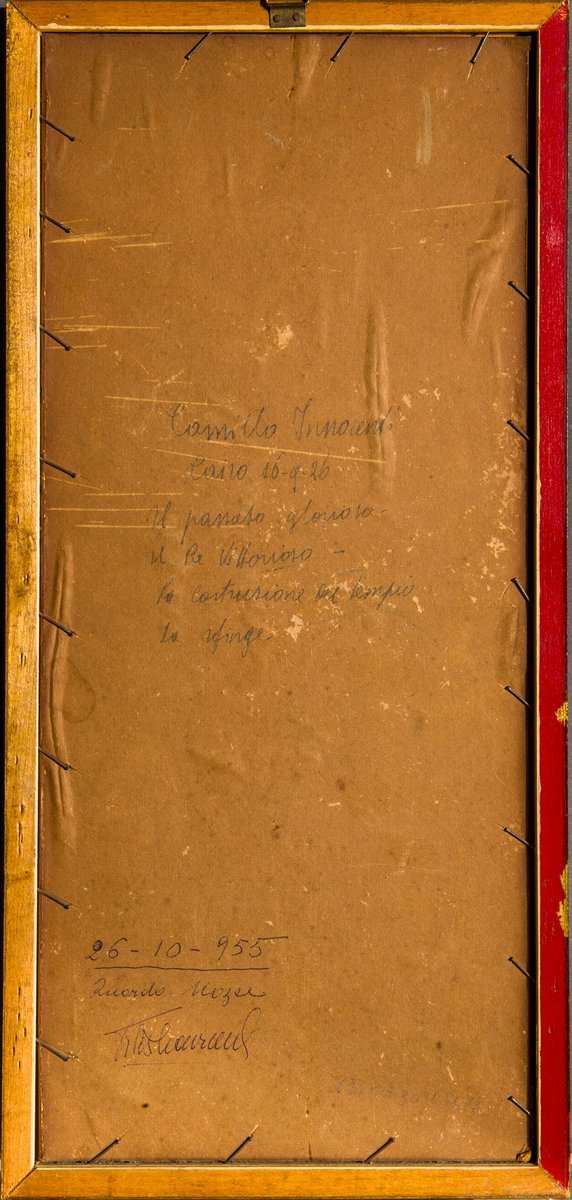 Camillo Innocenti
Cairo 16-9-26
Il passato glorioso -
il Re Vittorioso -
La costruzione dei tempii
La sfinge.
26-10-955
Ricordo Nozze